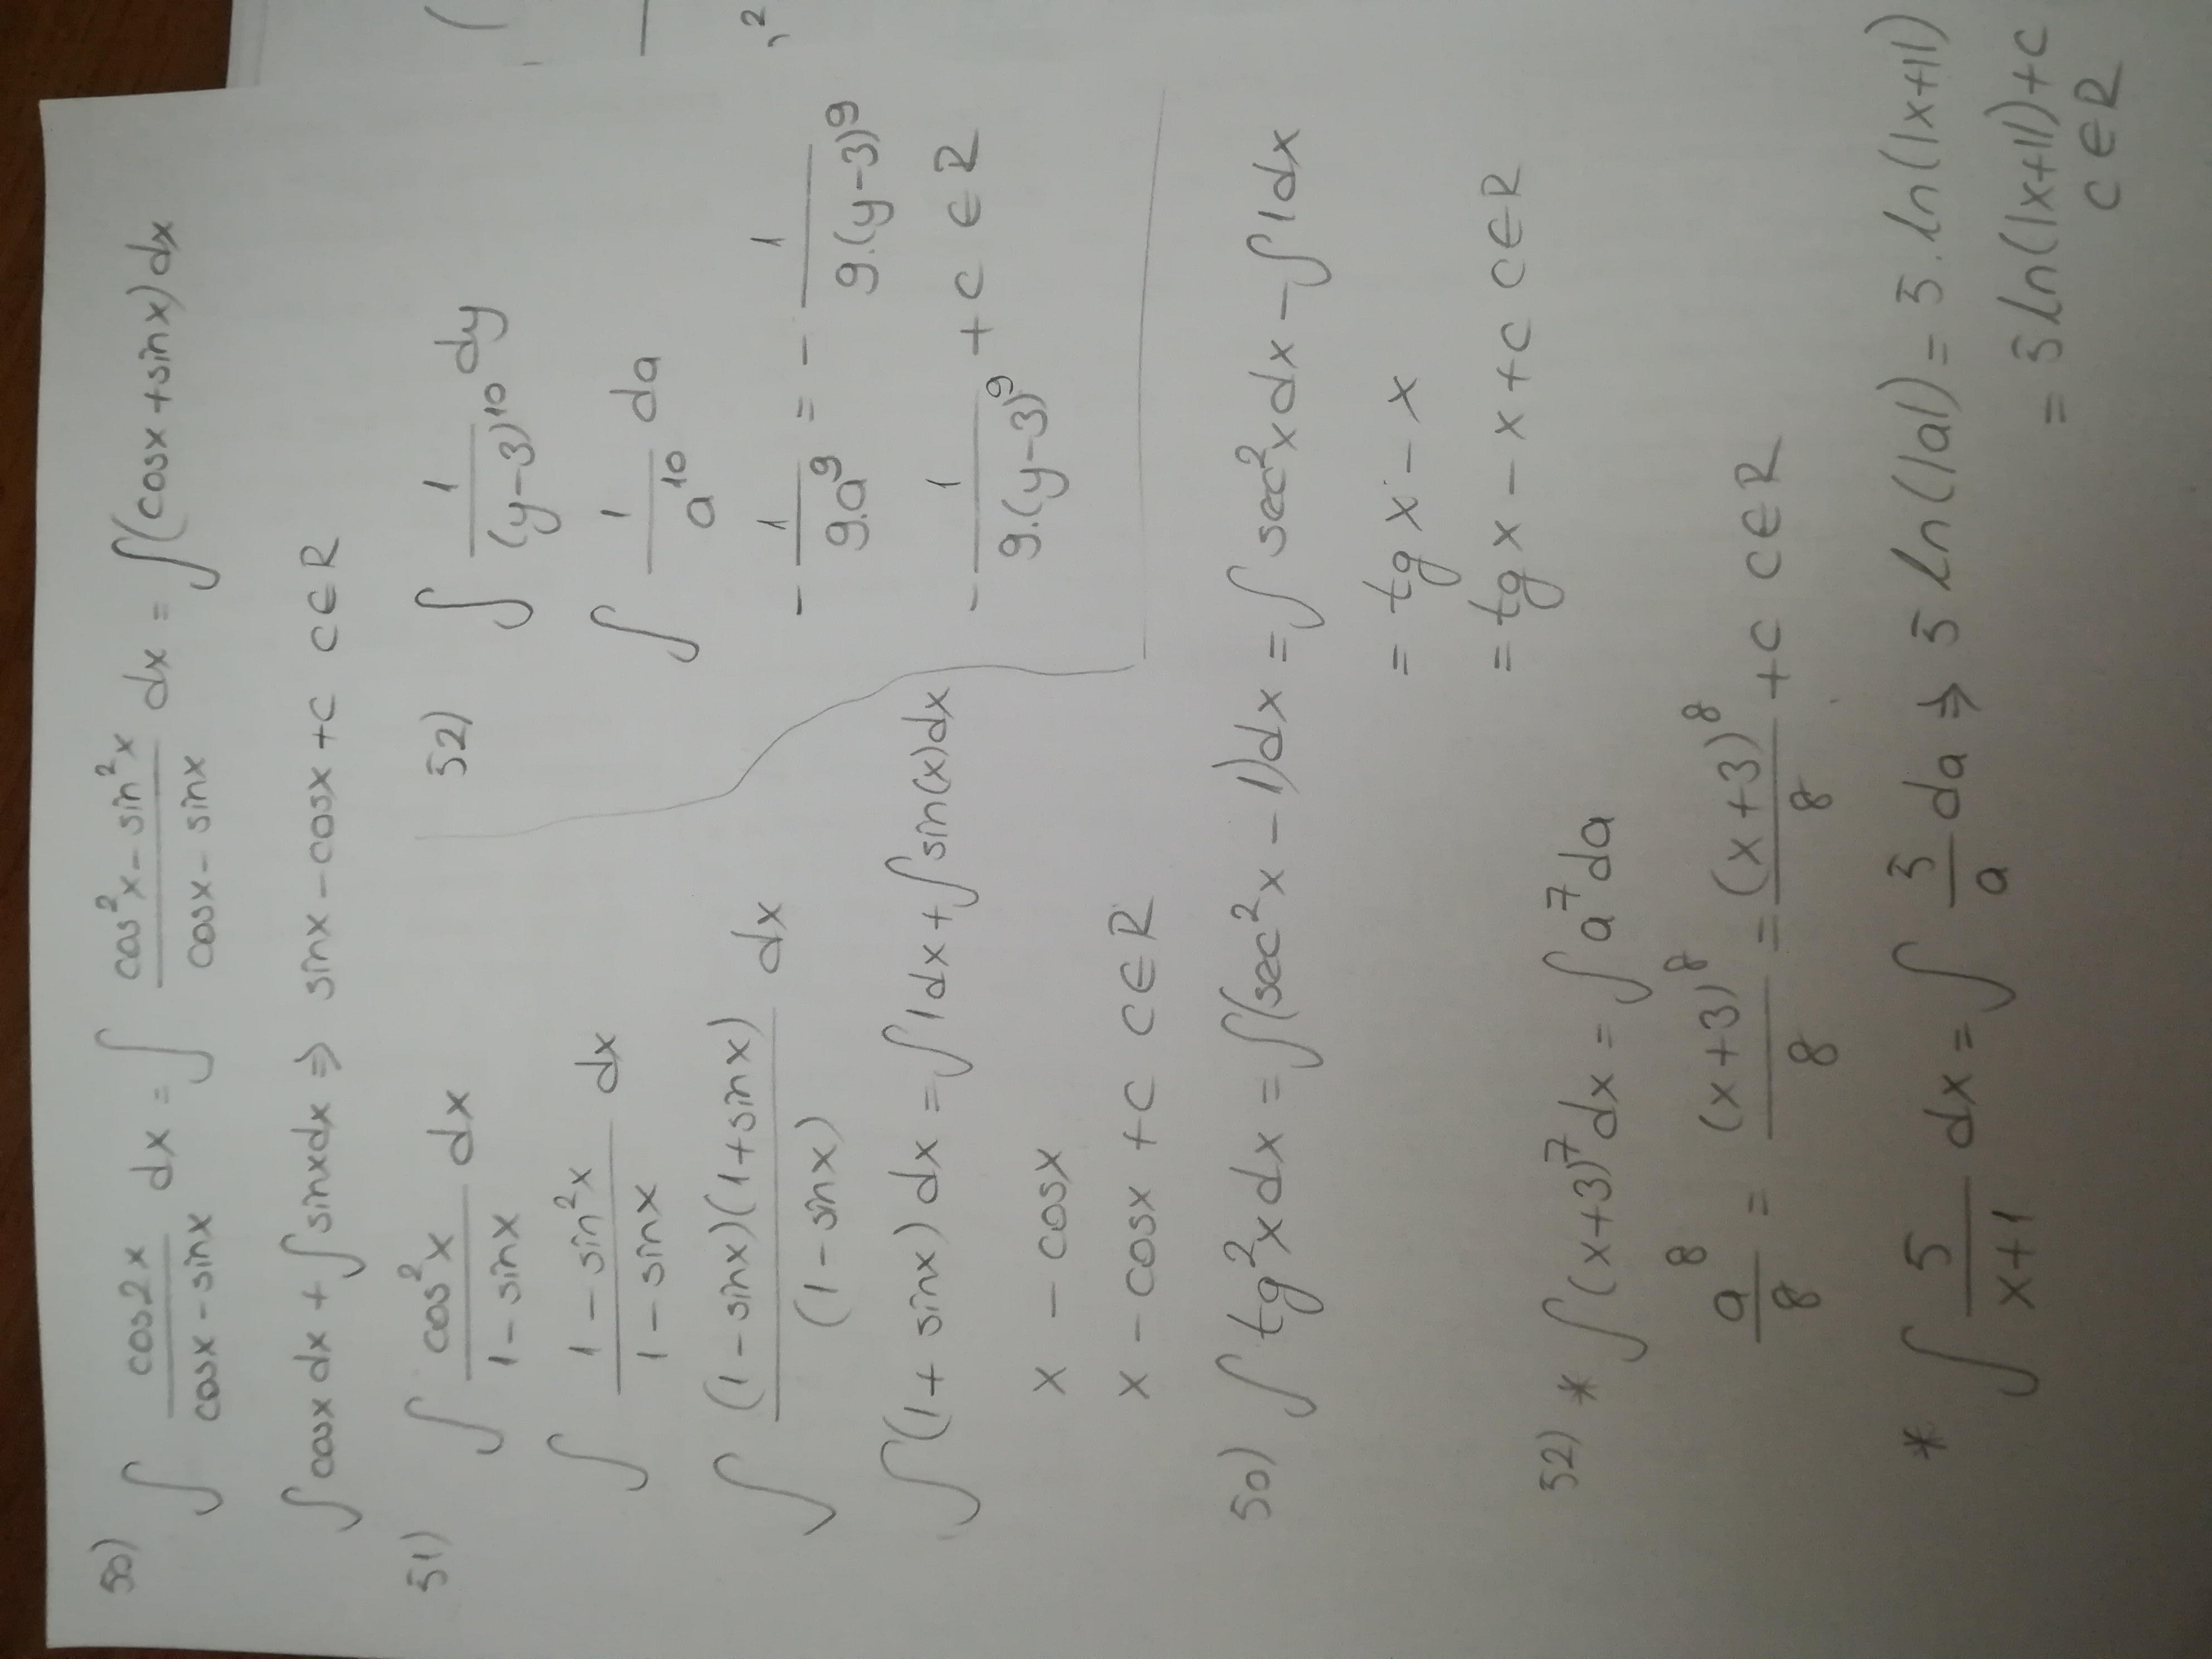 50) ∫ cos2x / (cosx - sinx) dx = ∫ (cos²x - sin²x) / (cosx - sinx) dx = ∫(cosx + sinx) dx
∫cosx dx + ∫sinxdx ⇒ sinx - cosx + c c∈R
51) ∫ cos²x / (1 - sinx) dx
∫ (1 - sin²x) / (1 - sinx) dx
∫ (1 - sinx)(1 + sinx) / (1 - sinx) dx
∫(1 + sinx) dx = ∫1dx + ∫sin(x)dx
x - cosx
x - cosx + c c∈R
52) ∫ 1 / (y-3)¹⁰ dy
∫ 1 / a¹⁰ da
- 1 / 9.a⁹ = - 1 / 9.(y-3)⁹
- 1 / 9.(y-3)⁹ + c ∈ R
50) ∫tg²xdx = ∫(sec²x - 1)dx = ∫sec²xdx - ∫1dx
= tgx - x
= tgx - x + c c∈R
52) * ∫(x+3)⁷dx = ∫a⁷da
a⁸ / 8 = (x+3)⁸ / 8 = (x+3)⁸ / 8 + c c∈R
* ∫ 5 / (x+1) dx = ∫ 5 / a da ⇒ 5 ln(|a|) = 5.ln(|x+1|)
= 5 ln(|x+1|)+c
c∈R